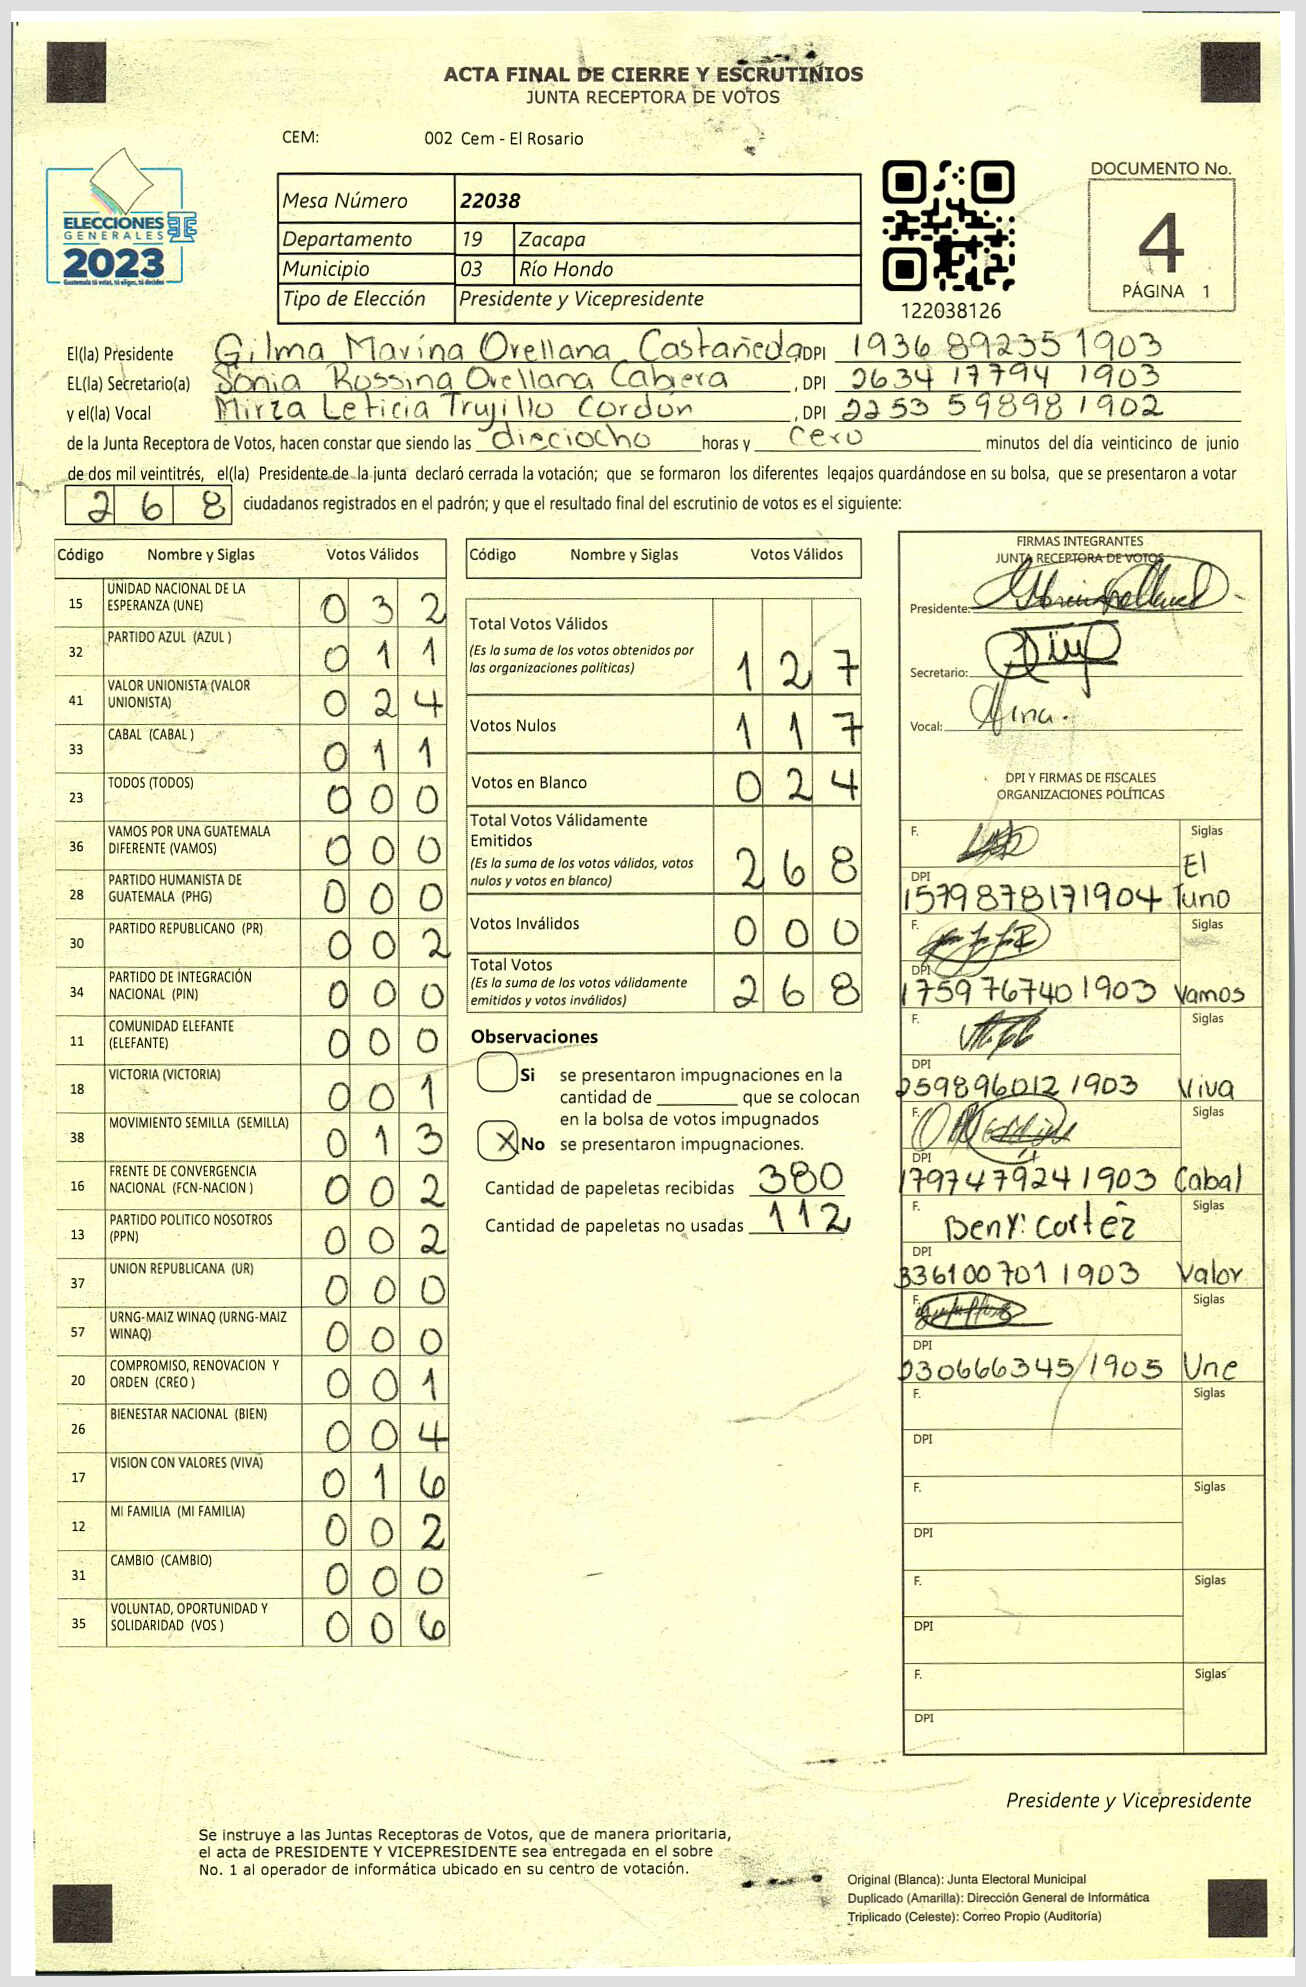 ACTA FINAL DE CIERRE Y ESCRUTINIOS
JUNTA RECEPTORA DE VOTOS
CEM: 002 Cem - El Rosario
ELECCIONES
GENERALES
2023
Guatemala tú votas, tú eliges, tú decides
Mesa Número 22038
Departamento 19 Zacapa
Municipio 03 Río Hondo
Tipo de Elección Presidente y Vicepresidente
122038126
DOCUMENTO No.
4
PÁGINA 1
El(la) Presidente Gilma Marína Orellana Castañeda, DPI 1936 89235 1903
EL(la) Secretario(a) Sonia Rossina Orellana Cabrera, DPI 2634 17794 1903
y el(la) Vocal Mirza Leticia Trujillo Cordón, DPI 2253 59898 1902
de la Junta Receptora de Votos, hacen constar que siendo las dieciocho horas y cero minutos del día veinticinco de junio
de dos mil veintitrés, el(la) Presidente de la junta declaró cerrada la votación; que se formaron los diferentes legajos quardándose en su bolsa, que se presentaron a votar
268 ciudadanos registrados en el padrón; y que el resultado final del escrutinio de votos es el siguiente:
Código Nombre y Siglas Votos Válidos
15 UNIDAD NACIONAL DE LA ESPERANZA (UNE) 0 3 2
32 PARTIDO AZUL (AZUL ) 0 1 1
41 VALOR UNIONISTA (VALOR UNIONISTA) 0 2 4
33 CABAL (CABAL ) 0 1 1
23 TODOS (TODOS) 0 0 0
36 VAMOS POR UNA GUATEMALA DIFERENTE (VAMOS) 0 0 0
28 PARTIDO HUMANISTA DE GUATEMALA (PHG) 0 0 0
30 PARTIDO REPUBLICANO (PR) 0 0 2
34 PARTIDO DE INTEGRACIÓN NACIONAL (PIN) 0 0 0
11 COMUNIDAD ELEFANTE (ELEFANTE) 0 0 0
18 VICTORIA (VICTORIA) 0 0 1
38 MOVIMIENTO SEMILLA (SEMILLA) 0 1 3
16 FRENTE DE CONVERGENCIA NACIONAL (FCN-NACION ) 0 0 2
13 PARTIDO POLITICO NOSOTROS (PPN) 0 0 2
37 UNION REPUBLICANA (UR) 0 0 0
57 URNG-MAIZ WINAQ (URNG-MAIZ WINAQ) 0 0 0
20 COMPROMISO, RENOVACION Y ORDEN (CREO ) 0 0 1
26 BIENESTAR NACIONAL (BIEN) 0 0 4
17 VISION CON VALORES (VIVA) 0 1 6
12 MI FAMILIA (MI FAMILIA) 0 0 2
31 CAMBIO (CAMBIO) 0 0 0
35 VOLUNTAD, OPORTUNIDAD Y SOLIDARIDAD (VOS ) 0 0 6
Código Nombre y Siglas Votos Válidos
Total Votos Válidos
(Es la suma de los votos obtenidos por
las organizaciones políticas) 1 2 7
Votos Nulos 1 1 7
Votos en Blanco 0 2 4
Total Votos Válidamente
Emitidos
(Es la suma de los votos válidos, votos
nulos y votos en blanco) 2 6 8
Votos Inválidos 0 0 0
Total Votos
(Es la suma de los votos válidamente
emitidos y votos inválidos) 2 6 8
Observaciones
Si se presentaron impugnaciones en la
cantidad de ________ que se colocan
en la bolsa de votos impugnados
X No se presentaron impugnaciones.
Cantidad de papeletas recibidas 380
Cantidad de papeletas no usadas 112
FIRMAS INTEGRANTES
JUNTA RECEPTORA DE VOTOS
Presidente:
Secretario:
Vocal:
DPI Y FIRMAS DE FISCALES
ORGANIZACIONES POLÍTICAS
F. Siglas
El
DPI
1579878171904 Tuno
F. Siglas
DPI
1759767401903 Vamos
F. Siglas
DPI
2598960121903 Viva
F. Siglas
DPI
1797479241903 Cabal
F. Beny: Cortéz Siglas
DPI
3361007011903 Valor
F. Siglas
DPI
2306663451905 Une
F. Siglas
DPI
F. Siglas
DPI
F. Siglas
DPI
F. Siglas
DPI
Presidente y Vicepresidente
Se instruye a las Juntas Receptoras de Votos, que de manera prioritaria,
el acta de PRESIDENTE Y VICEPRESIDENTE sea entregada en el sobre
No. 1 al operador de informática ubicado en su centro de votación.
Original (Blanca): Junta Electoral Municipal
Duplicado (Amarilla): Dirección General de Informática
Triplicado (Celeste): Correo Propio (Auditoría)